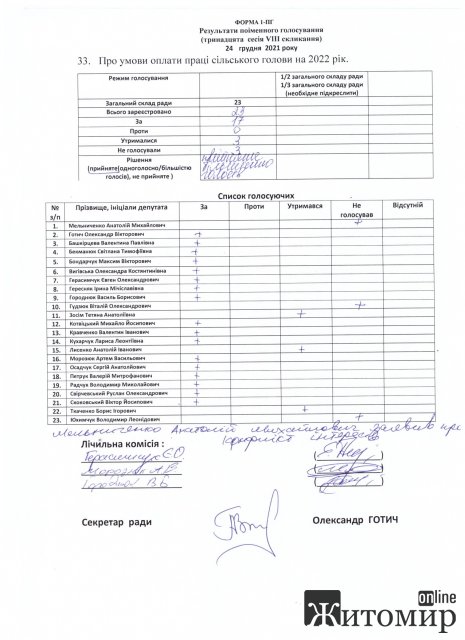 ФОРМА І-ПГ
Результати поіменного голосування
(тринадцята сесія VIII скликання)
24 грудня 2021 року
33. Про умови оплати праці сільського голови на 2022 рік.
Режим голосування 1/2 загального складу ради
1/3 загального складу ради
(необхідне підкреслити)
Загальний склад ради 23
Всього зареєстровано 23
За 17
Проти 0
Утрималися 3
Не голосували 3
Рішення
(прийняте(одноголосно/більшістю
голосів), не прийняте )
прийняте
більшістю
голосів
Список голосуючих
№ з/п Прізвище, ініціали депутата За Проти Утримався Не голосував Відсутній
1. Мельниченко Анатолій Михайлович +
2. Готич Олександр Вікторович +
3. Башкірцева Валентина Павлівна +
4. Бехманюк Світлана Тимофіївна +
5. Бондарчук Максим Вікторович +
6. Вигівська Олександра Костянтинівна +
7. Герасимчук Євген Олександрович +
8. Гересняк Ірина Мічіславівна +
9. Городнюк Василь Борисович +
10. Гудзюк Віталій Олександрович +
11. Зосім Тетяна Анатоліївна +
12. Котвіцький Михайло Йосипович +
13. Кравченко Валентин Іванович +
14. Кухарчук Лариса Леонтіївна +
15. Лисенко Анатолій Іванович +
16. Морозюк Артем Васильович +
17. Осадчук Сергій Анатолійович +
18. Петрук Валерій Митрофанович +
19. Радчук Володимир Миколайович +
20. Свірчевський Руслан Олександрович +
21. Сюковський Віктор Йосипович +
22. Ткаченко Борис Ігорович +
23. Юхимчук Володимир Леонідович +
Мельниченко Анатолій Михайлович заявив про
конфлікт інтересів
Лічильна комісія :
Герасимчук Є.О
Морозюк А.В
Городнюк В.Б
Секретар ради Олександр ГОТИЧ
Житомир
online